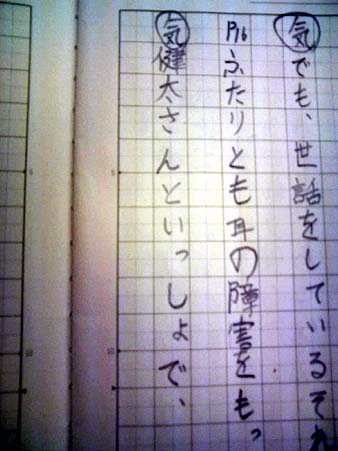 気でも、世話をしているそれ
P16ふたりとも耳の障害をもっ
気健太さんといっしょで、